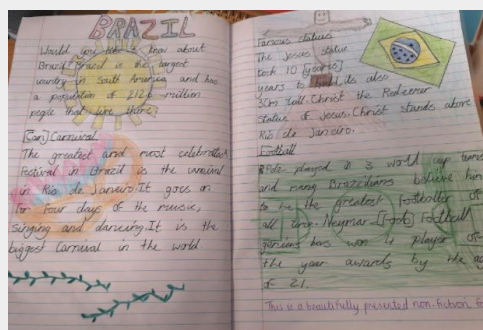 BRAZIL
Would you like to know about
Brazil? Brazil is the largest
country in South America and has
a population of 212.6 million
people that live there.
[San] Carnival
The greatest and most celebrated
Festival in Brazil is the carnival
in Rio de Janeiro. It goes on
for four days of the music,
Singing and dancing. It is the
biggest Carnival in the world.
Famous statues
The Jesus statue
took 10 [years]
years to build, its also
30m tall. Christ the Redeemer
statue of Jesus. Christ stands above
Rio de Janeiro.
Football
Pele played in 3 world cup
and many Brazilians believe him
to be the greatest footballer of
all time. Neymar Football
genious has won 4 player of
the year awards by the age
of 21.
This is a beautifully presented non-fiction